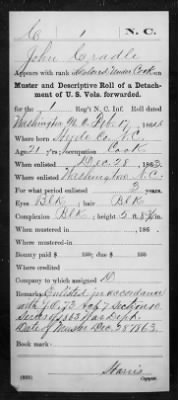 C | 1 | N. C.
John Cradle
Appears with rank of Colored Under Cook on
Muster and Descriptive Roll of a Detach-
ment of U. S. Vols. forwarded.
for the 1 Reg't N. C. Inf. Roll dated
Washington N. C. Feb. 17, 1864.
Where born Hyde Co, N.C.
Age 21 y'rs; occupation Cook
When enlisted Dec. 28, 1863.
Where enlisted Washington, N.C.
For what period enlisted 3 years.
Eyes Blk; hair Blk
Complexion Blk; height 5 ft. 8 in.
When mustered in , 186 .
Where mustered in
Bounty paid $ 100; due $ 100
Where credited
Company to which assigned D
Remarks: Enlisted in accordance
with G.O. 73 Section 10
Series of 1863 War Dept.
Date of Muster Dec. 28 1863.
Book mark:
Harris
Copyist.